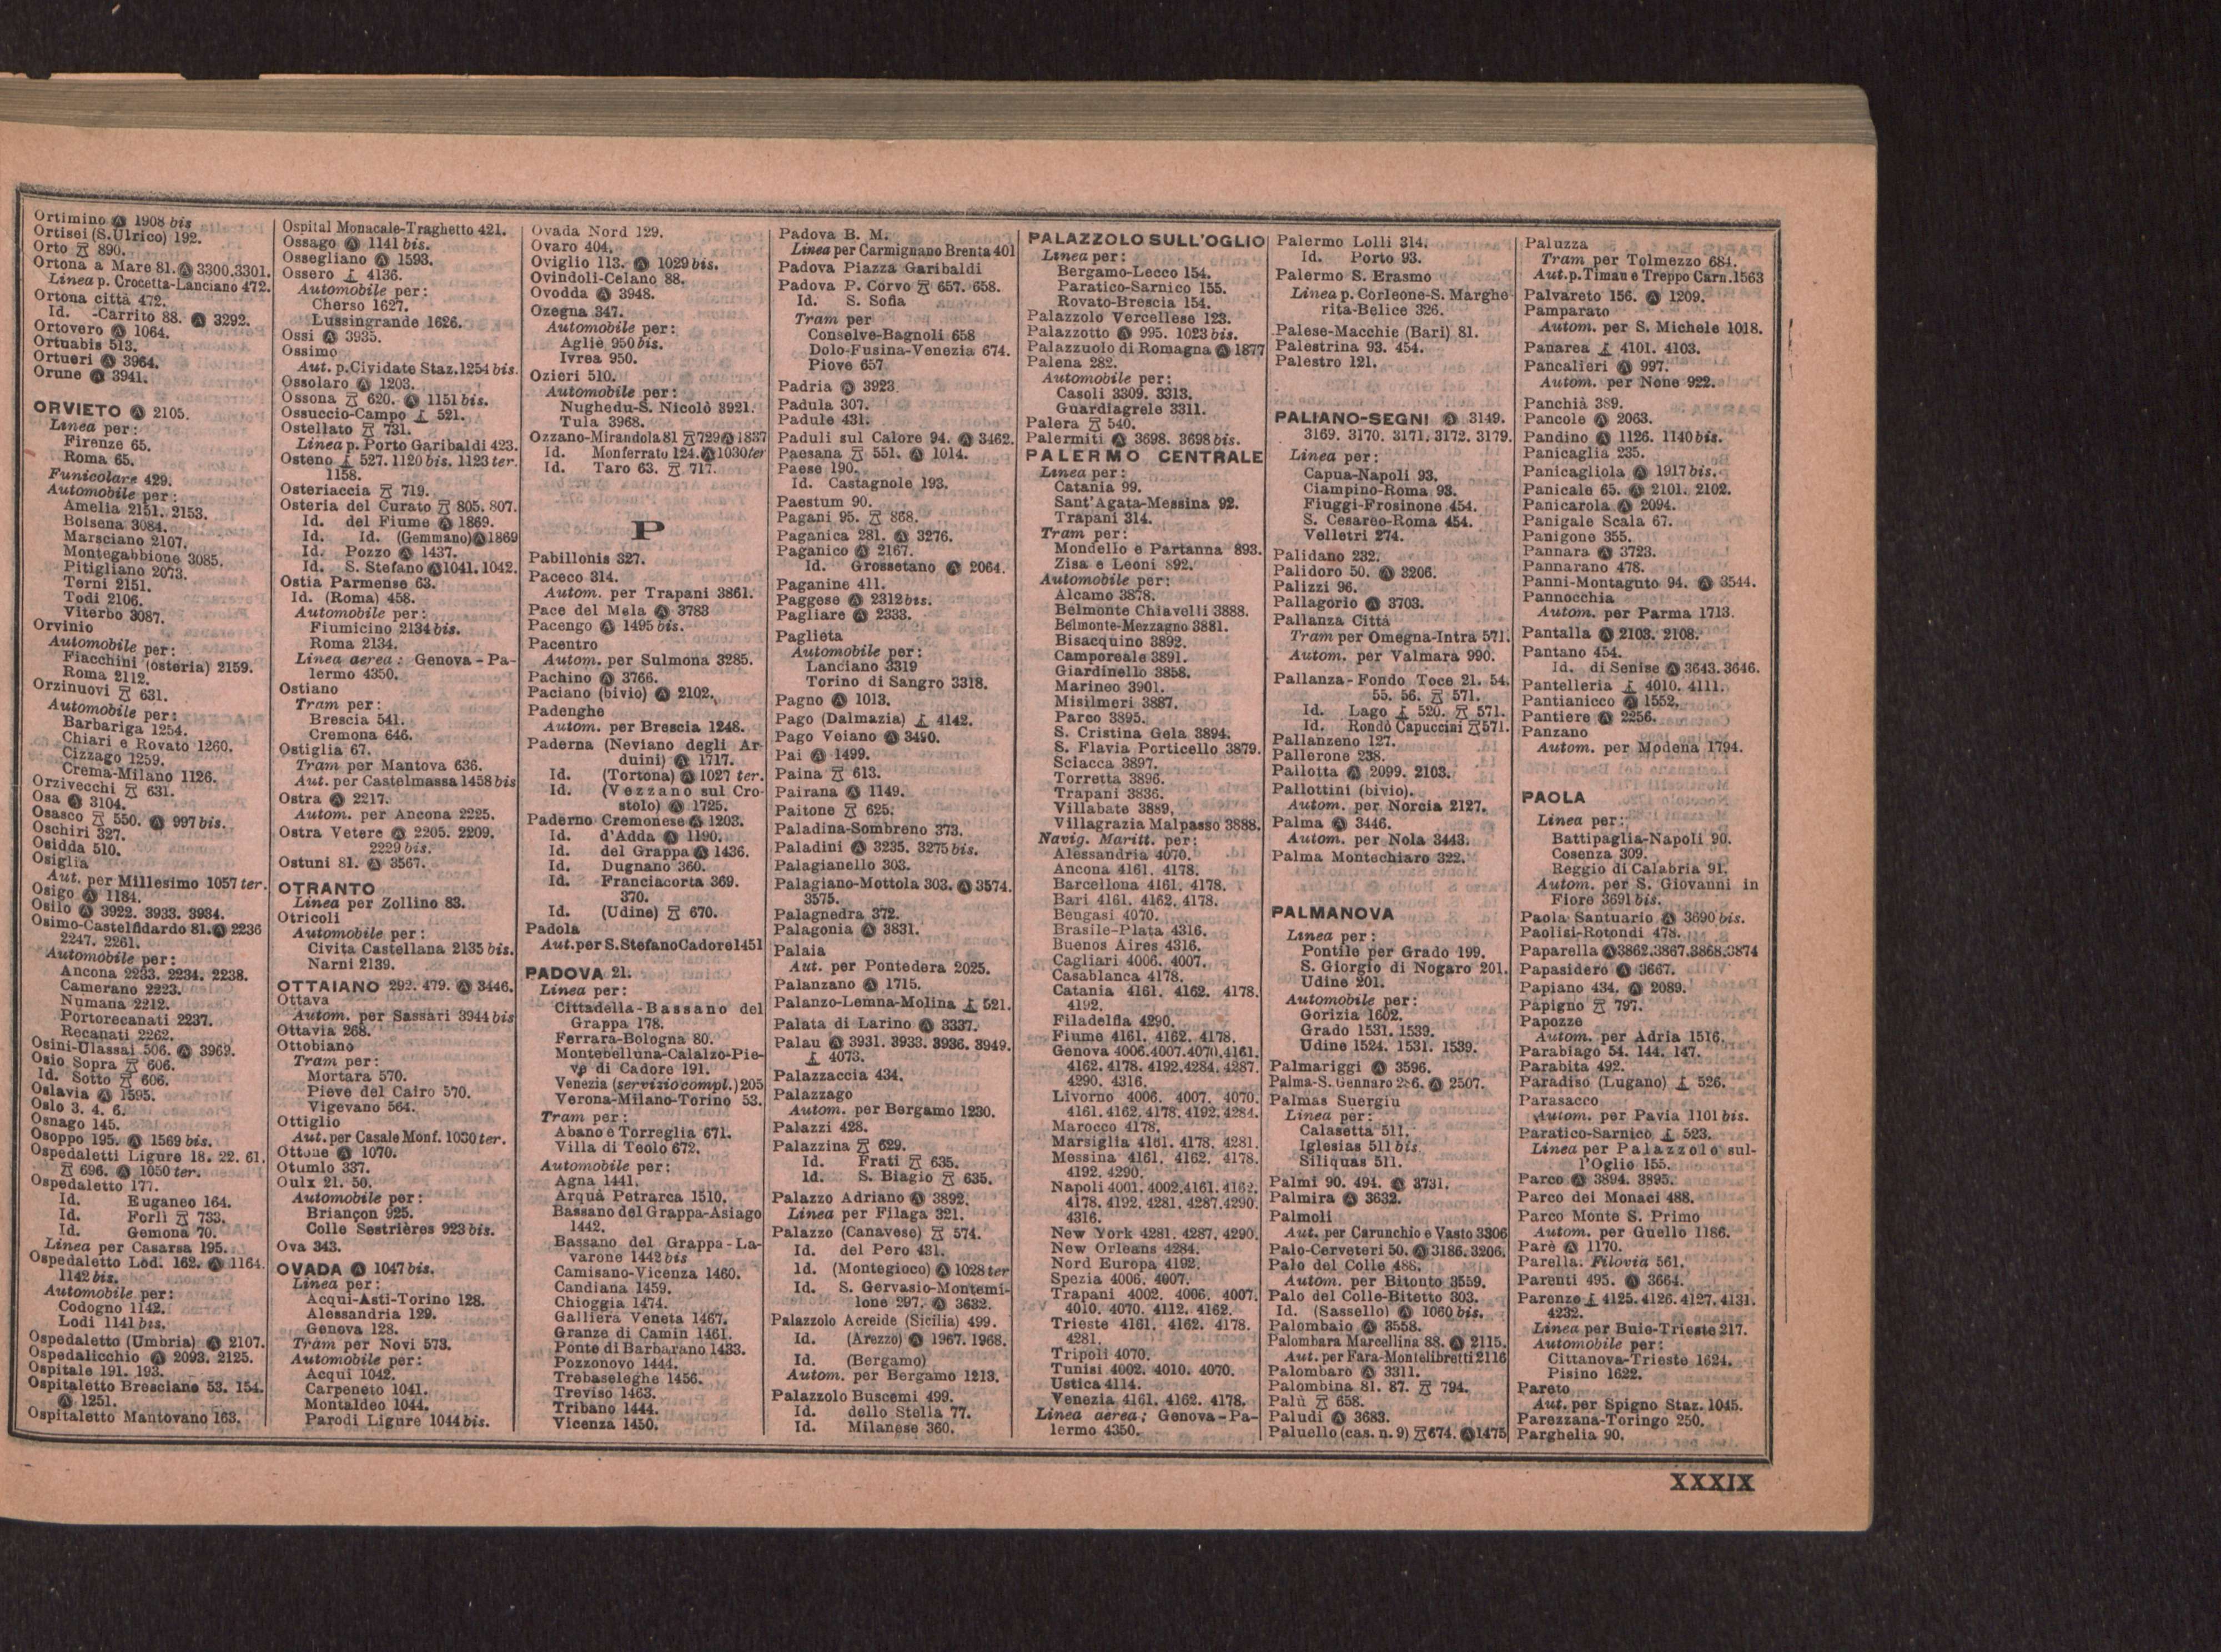 Ortimino Ⓐ 1908 bis
Ortisei (S. Ulrico) 192.
Orto 890.
Ortona a Mare 81. Ⓐ 3300.3301.
Linea p. Crocetta-Lanciano 472.
Ortona città 472.
Id. -Carrito 88. Ⓐ 3292.
Ortovero Ⓐ 1064.
Ortuabis 513.
Ortueri Ⓐ 3964.
Orune Ⓐ 3941.
ORVIETO Ⓐ 2105.
Linea per:
Firenze 65.
Roma 65.
Funicolare 429.
Automobile per:
Amelia 2151. 2153.
Bolsena 3084.
Marsciano 2107.
Montegabbione 3085.
Pitigliano 2073.
Terni 2151.
Todi 2106.
Viterbo 3087.
Orvinio
Automobile per:
Fiacchini (osteria) 2159.
Roma 2112.
Orzinuovi 631.
Automobile per:
Barbariga 1254.
Chiari e Rovato 1260.
Cizzago 1259.
Crema-Milano 1126.
Orzivecchi 631.
Osa Ⓐ 3104.
Osasco 550. Ⓐ 997 bis.
Oschiri 327.
Osidda 510.
Osiglia
Aut. per Millesimo 1057 ter.
Osigo Ⓐ 1184.
Osilo Ⓐ 3922. 3933. 3934.
Osimo-Castelfidardo 81. Ⓐ 2236
2247. 2261.
Automobile per:
Ancona 2233. 2234. 2238.
Camerano 2223.
Numana 2212.
Portorecanati 2237.
Recanati 2262.
Osini-Ulassai 506. Ⓐ 3969.
Osio Sopra 606.
Id. Sotto 606.
Oslavia Ⓐ 1595.
Oslo 3. 4. 6.
Osnago 145.
Osoppo 195. Ⓐ 1569 bis.
Ospedaletti Ligure 18. 22. 61.
696. Ⓐ 1050 ter.
Ospedaletto 177.
Id. Euganeo 164.
Id. Forlì 733.
Id. Gemona 70.
Linea per Casarsa 195.
Ospedaletto Lod. 162. Ⓐ 1164.
1142 bis.
Automobile per:
Codogno 1142.
Lodi 1141 bis.
Ospedaletto (Umbria) Ⓐ 2107.
Ospedalicchio Ⓐ 2093. 2125.
Ospitale 191. 193.
Ospitaletto Bresciano 53. 154.
Ⓐ 1251.
Ospitaletto Mantovano 163.
Ospital Monacale-Traghetto 421.
Ossago Ⓐ 1141 bis.
Ossegliano Ⓐ 1593.
Ossero 4136.
Automobile per:
Cherso 1627.
Lussingrande 1626.
Ossi Ⓐ 3935.
Ossimo
Aut. p. Cividate Staz. 1254 bis.
Ossolaro Ⓐ 1203.
Ossona 620. Ⓐ 1151 bis.
Ossuccio-Campo 521.
Ostellato 731.
Linea p. Porto Garibaldi 423.
Osteno 527. 1120 bis. 1123 ter.
1158.
Osteriaccia 719.
Osteria del Curato 805. 807.
Id. del Fiume Ⓐ 1869.
Id. Id. (Gemmano) Ⓐ 1869
Id. Pozzo Ⓐ 1437.
Id. S. Stefano Ⓐ 1041. 1042.
Ostia Parmense 63.
Id. (Roma) 458.
Automobile per:
Fiumicino 2134 bis.
Roma 2134.
Linea aerea: Genova-Pa-
lermo 4350.
Ostiano
Tram per:
Brescia 541.
Cremona 646.
Ostiglia 67.
Tram per Mantova 636.
Aut. per Castelmassa 1458 bis
Ostra Ⓐ 2217.
Autom. per Ancona 2225.
Ostra Vetere Ⓐ 2205. 2209.
2229 bis.
Ostuni 81. Ⓐ 3567.
OTRANTO
Linea per Zollino 83.
Otricoli
Automobile per:
Civita Castellana 2135 bis.
Narni 2139.
OTTAIANO 292. 479. Ⓐ 3446.
Ottava
Autom. per Sassari 3944 bis
Ottavia 268.
Ottobiano
Tram per:
Mortara 570.
Pieve del Cairo 570.
Vigevano 564.
Ottiglio
Aut. per Casale Monf. 1030 ter.
Ottone Ⓐ 1070.
Otumlo 337.
Oulx 21. 50.
Automobile per:
Briançon 925.
Colle Sestrières 923 bis.
Ova 343.
OVADA Ⓐ 1047 bis.
Linea per:
Acqui-Asti-Torino 128.
Alessandria 129.
Genova 128.
Tram per Novi 573.
Automobile per:
Acqui 1042.
Carpeneto 1041.
Montaldeo 1044.
Parodi Ligure 1044 bis.
Ovada Nord 129.
Ovaro 404.
Oviglio 113. Ⓐ 1029 bis.
Ovindoli-Celano 88.
Ovodda Ⓐ 3948.
Ozegna 347.
Automobile per:
Agliè 950 bis.
Ivrea 950.
Ozieri 510.
Automobile per:
Nughedu-S. Nicolò 3921.
Tula 3968.
Ozzano-Mirandola 81 729 Ⓐ 1837
Id. Monferrato 124. Ⓐ 1030 ter
Id. Taro 63. 717.
P
Pabillonis 327.
Paceco 314.
Autom. per Trapani 3861.
Pace del Mela Ⓐ 3783
Pacengo Ⓐ 1495 bis.
Pacentro
Autom. per Sulmona 3285.
Pachino Ⓐ 3766.
Paciano (bivio) Ⓐ 2102.
Padenghe
Autom. per Brescia 1248.
Paderna (Neviano degli Ar-
duini) Ⓐ 1717.
Id. (Tortona) Ⓐ 1027 ter.
Id. (Vezzano sul Cro-
stolo) Ⓐ 1725.
Paderno Cremonese Ⓐ 1203.
Id. d'Adda Ⓐ 1190.
Id. del Grappa Ⓐ 1436.
Id. Dugnano 360.
Id. Franciacorta 369.
370.
Id. (Udine) 670.
Padola
Aut. per S. Stefano Cadore 1451
PADOVA 21.
Linea per:
Cittadella-Bassano del
Grappa 178.
Ferrara-Bologna 80.
Montebelluna-Calalzo-Pie-
ve di Cadore 191.
Venezia (servizio compl.) 205
Verona-Milano-Torino 53.
Tram per:
Abano e Torreglia 671.
Villa di Teolo 672.
Automobile per:
Agna 1441.
Arquà Petrarca 1510.
Bassano del Grappa-Asiago
1442.
Bassano del Grappa-La-
varone 1442 bis
Camisano-Vicenza 1460.
Candiana 1459.
Chioggia 1474.
Galliera Veneta 1467.
Granze di Camin 1461.
Ponte di Barbarano 1433.
Pozzonovo 1444.
Trebaseleghe 1456.
Treviso 1463.
Tribano 1444.
Vicenza 1450.
Padova B. M.
Linea per Carmignano Brenta 401
Padova Piazza Garibaldi
Padova P. Corvo 657. 658.
Id. S. Sofia
Tram per
Conselve-Bagnoli 658
Dolo-Fusina-Venezia 674.
Piove 657
Padria Ⓐ 3923
Padula 307.
Padule 431.
Paduli sul Calore 94. Ⓐ 3462.
Paesana 551. Ⓐ 1014.
Paese 190.
Id. Castagnole 193.
Paestum 90.
Pagani 95. 868.
Paganica 281. Ⓐ 3276.
Paganico Ⓐ 2167.
Id. Grossetano Ⓐ 2064.
Paganine 411.
Paggese Ⓐ 2312 bis.
Pagliare Ⓐ 2333.
Paglieta
Automobile per:
Lanciano 3319
Torino di Sangro 3318.
Pagno Ⓐ 1013.
Pago (Dalmazia) 4142.
Pago Veiano Ⓐ 3490.
Pai Ⓐ 1499.
Paina 613.
Pairana Ⓐ 1149.
Paitone 625.
Paladina-Sombreno 373.
Paladini Ⓐ 3235. 3275 bis.
Palagianello 303.
Palagiano-Mottola 303. Ⓐ 3574.
3575.
Palagnedra 372.
Palagonia Ⓐ 3831.
Palaia
Aut. per Pontedera 2025.
Palanzano Ⓐ 1715.
Palanzo-Lemna-Molina 521.
Palata di Larino Ⓐ 3337.
Palau Ⓐ 3931. 3933. 3936. 3949.
4073.
Palazzaccia 434.
Palazzago
Autom. per Bergamo 1230.
Palazzi 428.
Palazzina 629.
Id. Frati 635.
Id. S. Biagio 635.
Palazzo Adriano Ⓐ 3892.
Linea per Filaga 321.
Palazzo (Canavese) 574.
Id. del Pero 431.
Id. (Montegioco) Ⓐ 1028 ter
Id. S. Gervasio-Montemi-
lone 297. Ⓐ 3632.
Palazzolo Acreide (Sicilia) 499.
Id. (Arezzo) Ⓐ 1967. 1968.
Id. (Bergamo)
Autom. per Bergamo 1213.
Palazzolo Buscemi 499.
Id. dello Stella 77.
Id. Milanese 360.
PALAZZOLO SULL'OGLIO
Linea per:
Bergamo-Lecco 154.
Paratico-Sarnico 155.
Rovato-Brescia 154.
Palazzolo Vercellese 123.
Palazzotto Ⓐ 995. 1023 bis.
Palazzuolo di Romagna Ⓐ 1877
Palena 282.
Automobile per:
Casoli 3309. 3313.
Guardiagrele 3311.
Palera 540.
Palermiti Ⓐ 3698. 3698 bis.
PALERMO CENTRALE
Linea per:
Catania 99.
Sant'Agata-Messina 92.
Trapani 314.
Tram per:
Mondello e Partanna 893.
Zisa e Leoni 892.
Automobile per:
Alcamo 3878.
Belmonte Chiavelli 3888.
Belmonte-Mezzagno 3881.
Bisacquino 3892.
Camporeale 3891.
Giardinello 3858.
Marineo 3901.
Misilmeri 3887.
Parco 3895.
S. Cristina Gela 3894.
S. Flavia Porticello 3879.
Sciacca 3897.
Torretta 3896.
Trapani 3836.
Villabate 3889.
Villagrazia Malpasso 3888.
Navig. Maritt. per:
Alessandria 4070.
Ancona 4161. 4178.
Barcellona 4161. 4178.
Bari 4161. 4162. 4178.
Bengasi 4070.
Brasile-Plata 4316.
Buenos Aires 4316.
Cagliari 4006. 4007.
Casablanca 4178.
Catania 4161. 4162. 4178.
4192.
Filadelfia 4290.
Fiume 4161. 4162. 4178.
Genova 4006.4007.4070.4161.
4162. 4178. 4192.4284. 4287.
4290. 4316.
Livorno 4006. 4007. 4070.
4161. 4162. 4178. 4192. 4284.
Marocco 4178.
Marsiglia 4161. 4178. 4281.
Messina 4161. 4162. 4178.
4192. 4290.
Napoli 4001. 4002.4161. 4162.
4178. 4192. 4281. 4287.4290.
4316.
New York 4281. 4287. 4290.
New Orleans 4284.
Nord Europa 4192.
Spezia 4006. 4007.
Trapani 4002. 4006. 4007.
4010. 4070. 4112. 4162.
Trieste 4161. 4162. 4178.
4281.
Tripoli 4070.
Tunisi 4002. 4010. 4070.
Ustica 4114.
Venezia 4161. 4162. 4178.
Linea aerea: Genova-Pa-
lermo 4350.
Palermo Lolli 314.
Id. Porto 93.
Palermo S. Erasmo
Linea p. Corleone-S. Marghe
rita-Belice 326.
Palese-Macchie (Bari) 81.
Palestrina 93. 454.
Palestro 121.
PALIANO-SEGNI Ⓐ 3149.
3169. 3170. 3171. 3172. 3179.
Linea per:
Capua-Napoli 93.
Ciampino-Roma 93.
Fiuggi-Frosinone 454.
S. Cesareo-Roma 454.
Velletri 274.
Palidano 232.
Palidoro 50. Ⓐ 3206.
Palizzi 96.
Pallagorio Ⓐ 3703.
Pallanza Città
Tram per Omegna-Intra 571.
Autom. per Valmara 990.
Pallanza-Fondo Toce 21. 54.
55. 56. 571.
Id. Lago 520. 571.
Id. Rondò Capuccini 571.
Pallanzeno 127.
Pallerone 238.
Pallotta Ⓐ 2099. 2103.
Pallottini (bivio).
Autom. per Norcia 2127.
Palma Ⓐ 3446.
Autom. per Nola 3443.
Palma Montechiaro 322.
PALMANOVA
Linea per:
Pontile per Grado 199.
S. Giorgio di Nogaro 201.
Udine 201.
Automobile per:
Gorizia 1602.
Grado 1531. 1539.
Udine 1524. 1531. 1539.
Palmariggi Ⓐ 3596.
Palma-S. Gennaro 286. Ⓐ 2507.
Palmas Suergiu
Linea per:
Calasetta 511.
Iglesias 511 bis.
Siliquas 511.
Palmi 90. 494. Ⓐ 3731.
Palmira Ⓐ 3632.
Palmoli
Aut. per Carunchio e Vasto 3306
Palo-Cerveteri 50. Ⓐ 3186. 3206.
Palo del Colle 488.
Autom. per Bitonto 3559.
Palo del Colle-Bitetto 303.
Id. (Sassello) Ⓐ 1060 bis.
Palombaio Ⓐ 3558.
Palombara Marcellina 88. Ⓐ 2115.
Aut. per Fara-Montelibretti 2116
Palombaro Ⓐ 3311.
Palombina 81. 87. 794.
Palù 658.
Paludi Ⓐ 3683.
Paluello (cas. n. 9) 674. Ⓐ 1475
Paluzza
Tram per Tolmezzo 684.
Aut. p. Timau e Treppo Carn. 1563
Palvareto 156. Ⓐ 1209.
Pamparato
Autom. per S. Michele 1018.
Panarea 4101. 4103.
Pancalieri Ⓐ 997.
Autom. per None 922.
Panchià 389.
Pancole Ⓐ 2063.
Pandino Ⓐ 1126. 1140 bis.
Panicaglia 235.
Panicagliola Ⓐ 1917 bis.
Panicale 65. Ⓐ 2101. 2102.
Panicarola Ⓐ 2094.
Panigale Scala 67.
Panigone 355.
Pannara Ⓐ 3723.
Pannarano 478.
Panni-Montaguto 94. Ⓐ 3544.
Pannocchia
Autom. per Parma 1713.
Pantalla Ⓐ 2103. 2108.
Pantano 454.
Id. di Senise Ⓐ 3643. 3646.
Pantelleria 4010. 4111.
Pantianicco Ⓐ 1552.
Pantiere Ⓐ 2256.
Panzano
Autom. per Modena 1794.
PAOLA
Linea per:
Battipaglia-Napoli 90.
Cosenza 309.
Reggio di Calabria 91.
Autom. per S. Giovanni in
Fiore 3691 bis.
Paola Santuario Ⓐ 3690 bis.
Paolisi-Rotondi 478.
Paparella Ⓐ 3862.3867.3868.3874
Papasidero Ⓐ 3667.
Papiano 434. Ⓐ 2089.
Papigno 797.
Papozze
Autom. per Adria 1516.
Parabiago 54. 144. 147.
Parabita 492.
Paradiso (Lugano) 526.
Parasacco
Autom. per Pavia 1101 bis.
Paratico-Sarnico 523.
Linea per Palazzolo sul-
l'Oglio 155.
Parco Ⓐ 3894. 3895.
Parco dei Monaci 488.
Parco Monte S. Primo
Autom. per Guello 1186.
Parè Ⓐ 1170.
Parella. Filovia 561.
Parenti 495. Ⓐ 3664.
Parenzo 4125. 4126. 4127. 4131.
4232.
Linea per Buie-Trieste 217.
Automobile per:
Cittanova-Trieste 1624.
Pisino 1622.
Pareto
Aut. per Spigno Staz. 1045.
Parezzana-Toringo 250.
Parghelia 90.
XXXIX